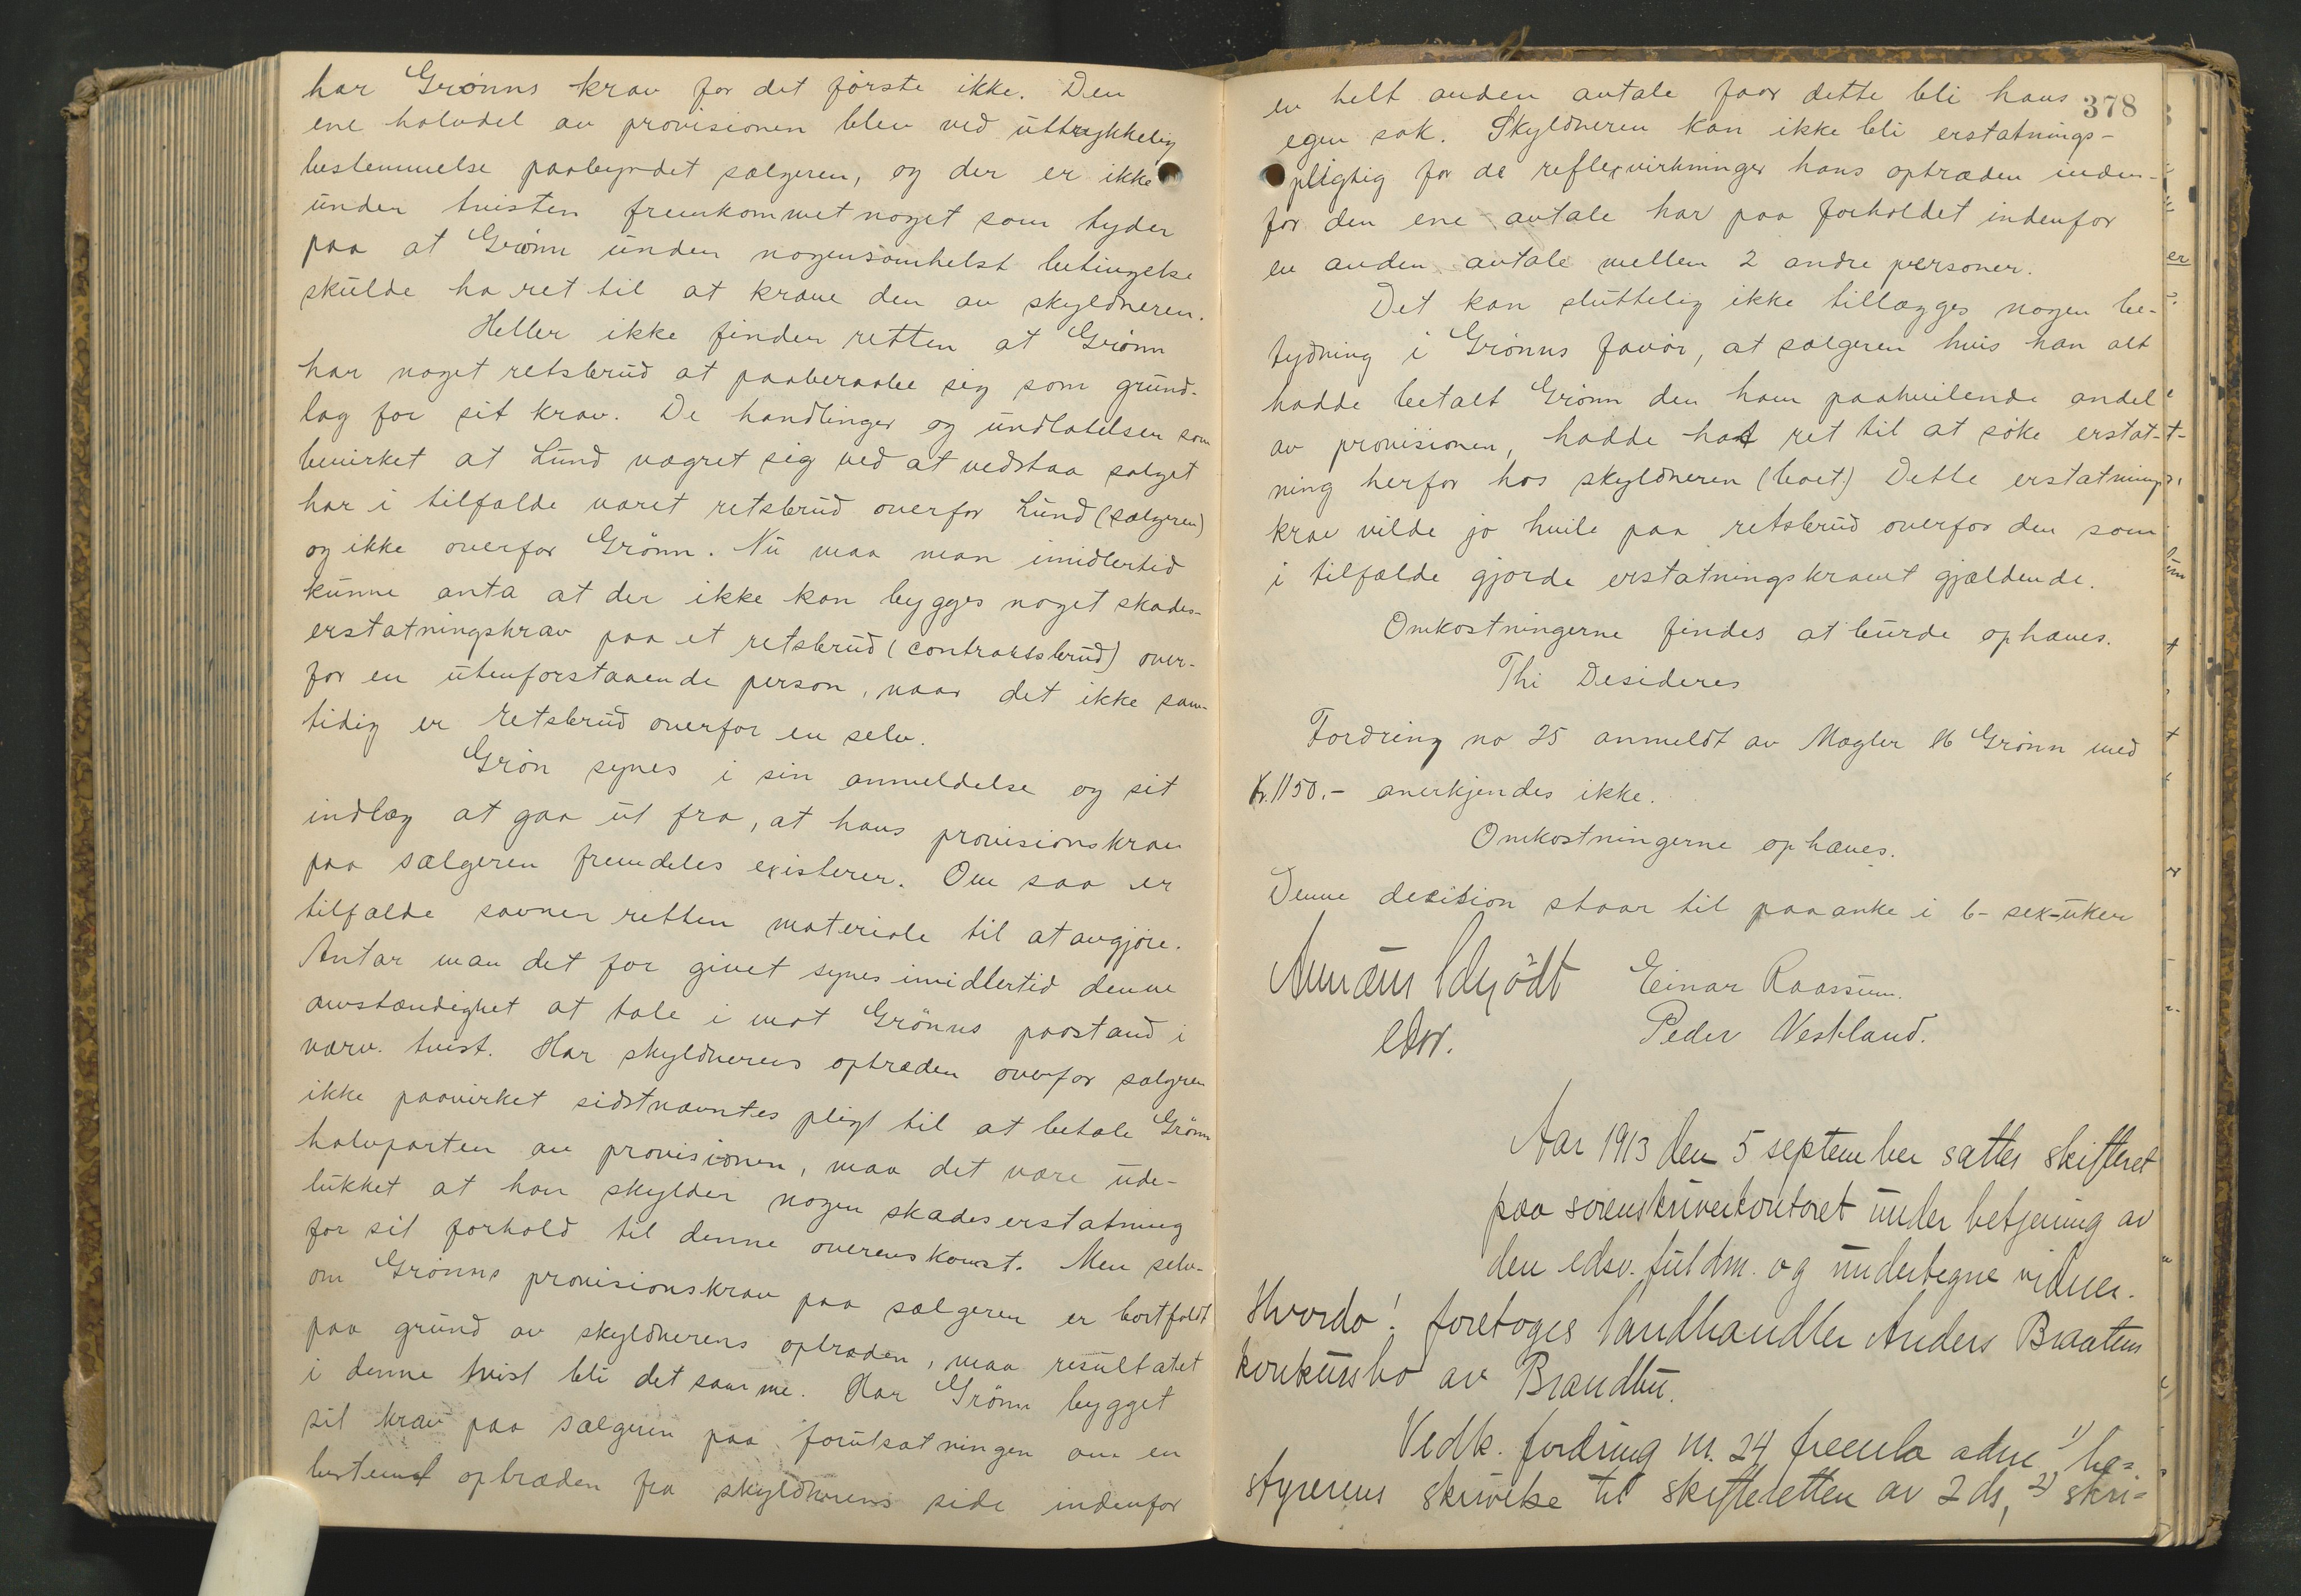 har Grönns krav for det förste ikke. Den
ene halvdel av provisionen blev ved uttrykkelig
bestemmelse paabyrdet sælgeren, og der er ikke
under tvisten fremkommet noget som tyder
paa at Grönn under nogensomhelst betingelse
skulde ha ret til at kræve den av skyldneren.
Heller ikke finder retten at Grönn
har noget retsbrud at paaberaabe sig som grund-
lag for sit krav. De handlinger og undlatelser som
bevirket at Lund vægret sig ved at vedstaa salget
har i tilfælde været retsbrud overfor Lund (sælgeren)
og ikke overfor Grönn. Nu maa man imidlertid
kunne anta at der ikke kan bygges noget skades-
erstatningskrav paa et retsbrud (contraktsbrud) over-
for en utenforstaaende person, naar det ikke sam-
tidig er retsbrud overfor en selv.
Grön synes i sin anmeldelse og sit
indlæg at gaa ut fra, at hans provisionskrav
paa sælgeren fremdeles existerer. Om saa er
tilfælde savner retten materiale til at avgjöre.
Antar man det for givet synes imidlertid denne
omstændighet at tale i mot Grönns paastand i
nærv. tvist. Har skyldnerens optræden overfor sælgeren
ikke paavirket sidstnævntes pligt til at betale Grönn
halvparten av provisionen, maa det være ude-
lukket at han skylder nogen skadeserstatning
for sit forhold til denne overenskomst. Men selv-
om Grönns provisionskrav paa sælgeren er bortfaldt
paa grund av skyldnerens optræden, maa resultatet
i denne tvist bli det samme. Har Grönn bygget
sit krav paa sælgeren paa forutsætningen om en
bestemt optræden fra skyldnerens side indenfor
378
en helt anden avtale faar dette bli hans
egen sak. Skyldneren kan ikke bli erstatnings-
pligtig for de reflexvirkninger hans optræden inden-
for den ene avtale har paa forholdet indenfor
en anden avtale mellem 2 andre personer.
Det kan sluttelig ikke tillægges nogen be-
tydning i Grönns favör, at sælgeren hvis han alt
hadde betalt Grönn den ham paahvilende andel
av provisionen, hadde hat ret til at söke erstat-
ning herfor hos skyldneren (boet.) Dette erstatnings
krav vilde jo hvile paa retsbrud overfor den som
i tilfælde gjorde erstatningskravet gjældende.
Omkostningerne findes at burde ophæves.
Thi Desideres
Fordring no 25 anmeldt av Mægler Grönn med
Kr. 1150.- anerkjendes ikke.
Omkostningerne ophæves.
Denne decision staar til paaanke i 6- sex-uker
Schjödt Einar Raassum.
Peder Vestland.
Aar 1913 den 5 september sattes skifteret
paa sorenskriverkontoret under betjening av
den edsv. fuldm. og undertegne vidner.
Hvorda! foretoges landhandler Anders Braatens
konkursbo av Brandbu.
Vedk. fordring nr. 24 fremla adm 1) be-
styrerens skrivelse til skifteretten av 2 ds, 2) skri-